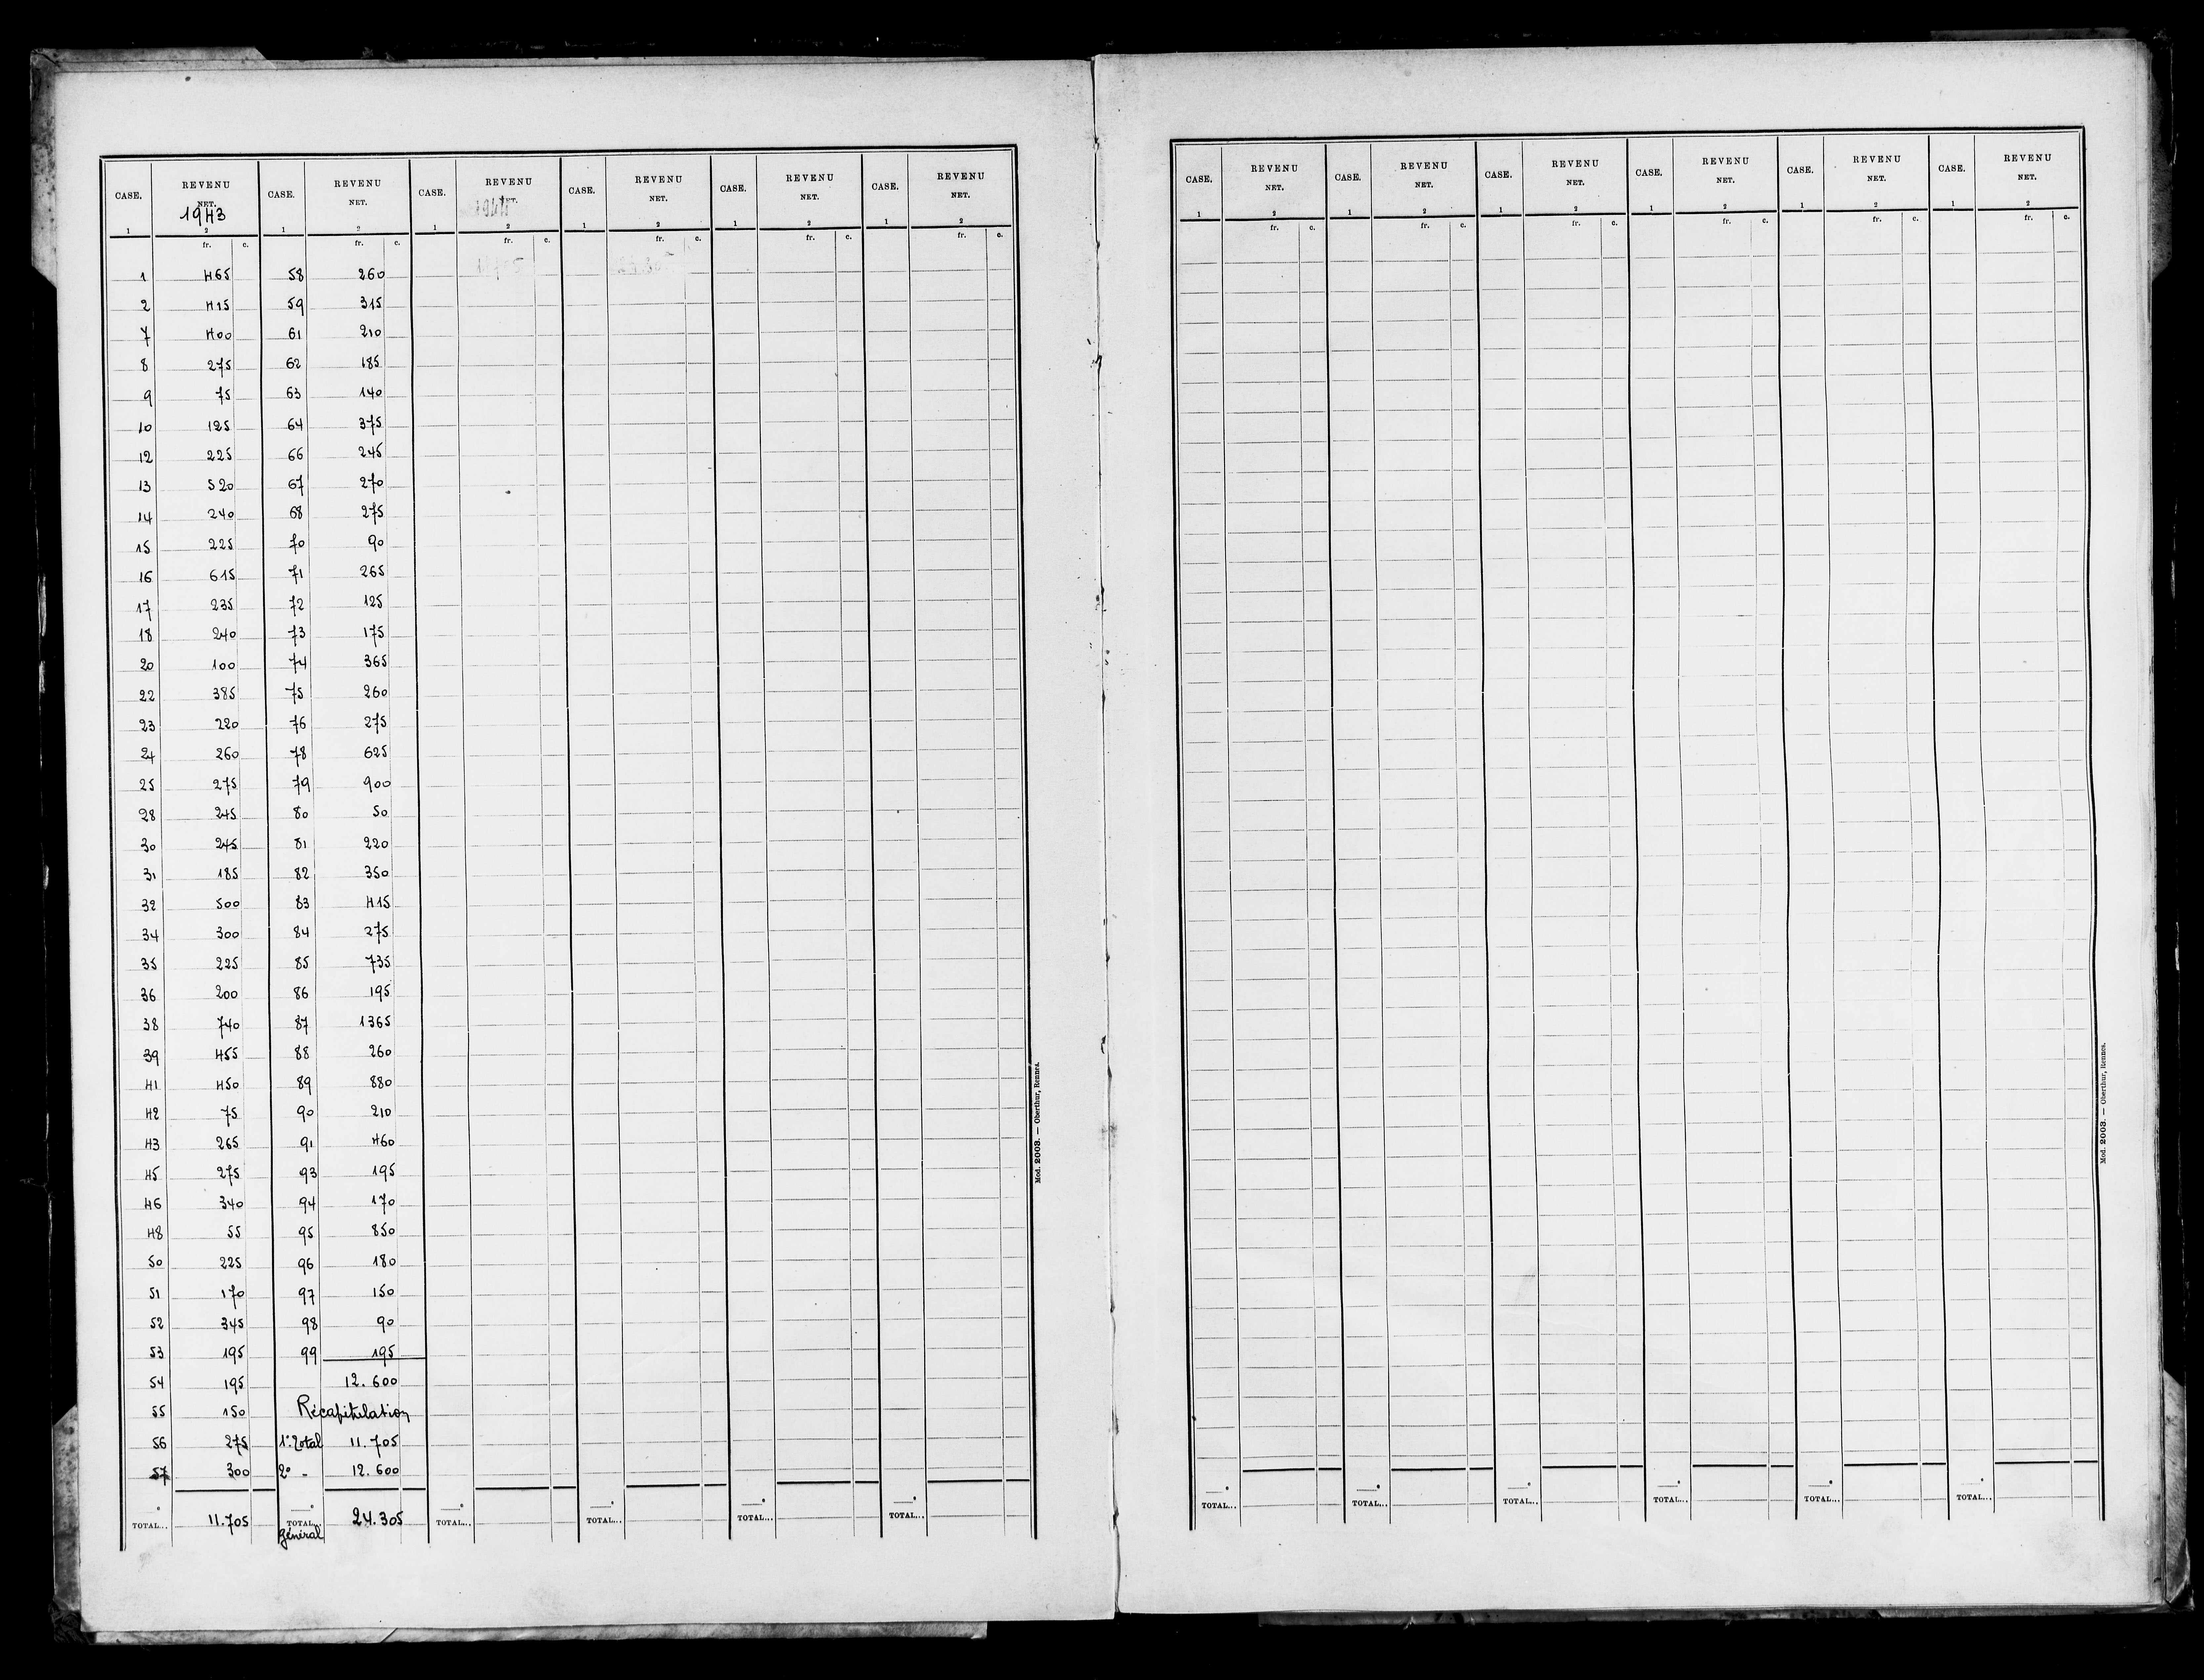 CASE. REVENU NET. CASE. REVENU NET. CASE. REVENU NET. CASE. REVENU NET. CASE. REVENU NET. CASE. REVENU NET.
1943
1 2 1 2 1 2 1 2 1 2 1 2
fr. c. fr. c. fr. c. fr. c. fr. c. fr. c.
1 465 58 260
2 415 59 315
7 400 61 210
8 275 62 185
9 75 63 140
10 125 64 375
12 225 66 245
13 520 67 270
14 240 68 275
15 225 70 90
16 615 71 265
17 235 72 125
18 240 73 175
20 100 74 365
22 385 75 260
23 220 76 275
24 260 78 625
25 275 79 900
28 245 80 50
30 245 81 220
31 185 82 350
32 500 83 415
34 300 84 275
35 225 85 735
36 200 86 195
38 740 87 1365
39 455 88 260
41 450 89 880
42 75 90 210
43 265 91 460
45 275 93 195
46 340 94 170
48 55 95 850
50 225 96 180
51 170 97 150
52 345 98 90
53 195 99 195
54 195 12.600
55 150 Récapitulation
56 275 1° Total 11.705
57 300 2° - 12.600
TOTAL... 11.705 TOTAL... 24.305 TOTAL... TOTAL... TOTAL... TOTAL...
général
Mod. 2003. — Oberthur, Rennes.
CASE. REVENU NET. CASE. REVENU NET. CASE. REVENU NET. CASE. REVENU NET. CASE. REVENU NET. CASE. REVENU NET.
1 2 1 2 1 2 1 2 1 2 1 2
fr. c. fr. c. fr. c. fr. c. fr. c. fr. c.
TOTAL... TOTAL... TOTAL... TOTAL... TOTAL... TOTAL...
Mod. 2003. — Oberthur, Rennes.